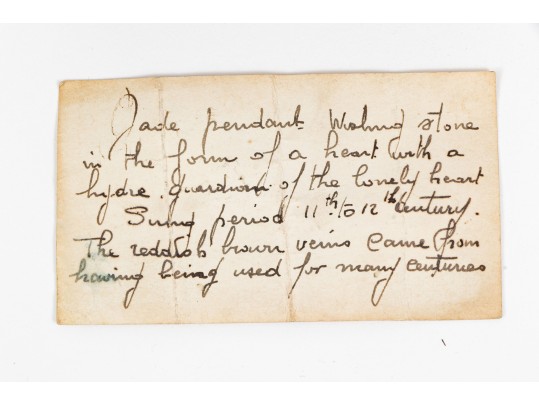 Jade pendant Wishing stone
in the form of a heart with a
hydre. guardian of the lonely heart
Sung period 11th to 12th century.
The reddish brown veins came from
having being used for many centuries